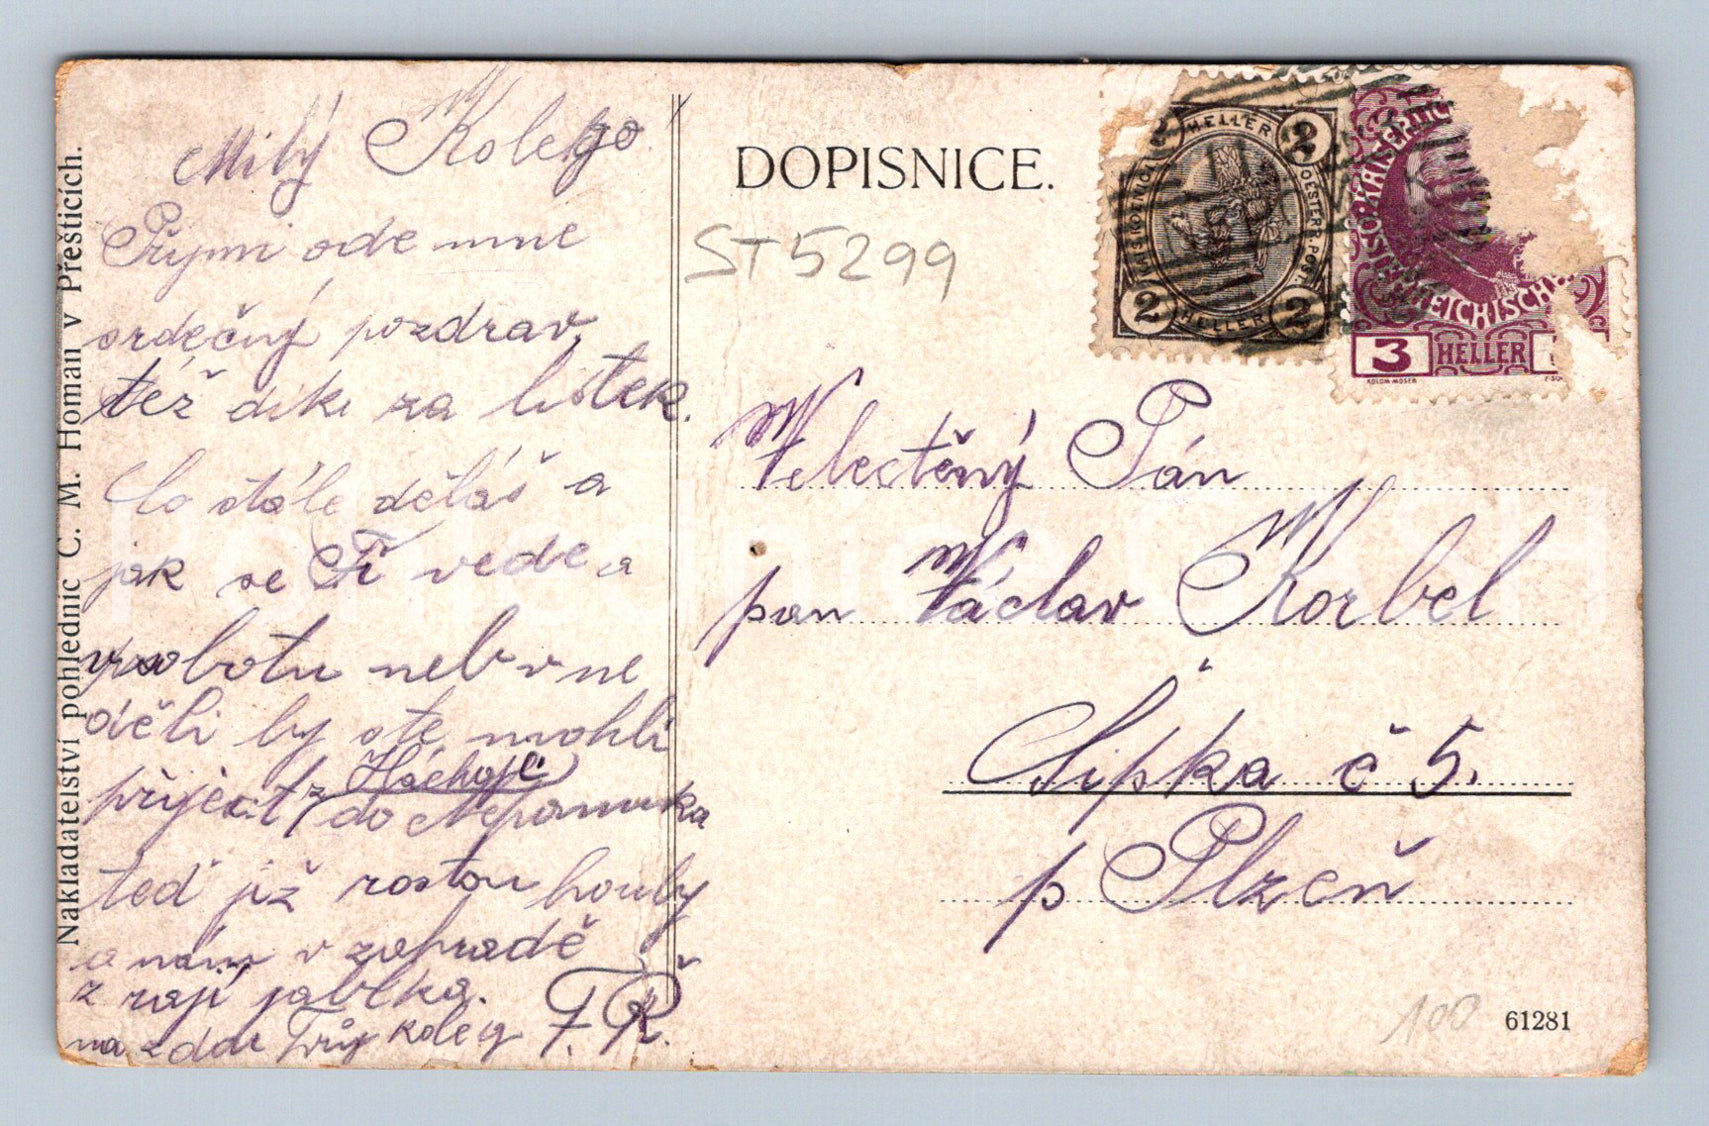 Milý Kolego.
Přijmi ode mne
srdečný pozdrav,
též díki za lístek.
Co stále děláš a
jak se Ti vede a
v sobotu neb v ne
děli by ste mohli
přiject z Háchajc
do Nepomuka
teď již rostou houby
a nám v zahradě
zrají jablka.
na zdar Tvůj koleg F. Ř.
Nakladatelství pohlednic C. M. Homan v Přešticích.
DOPISNICE.
ST5299
2 HELLER 2
KAIS. KOENIGL.
OESTERR. POST
2 HELLER 2
3 HELLER
KOLOM·MOSER
Velectěný Pán
pan Václav Korbel
Sipka č 5.
p Plzeň
100
61281